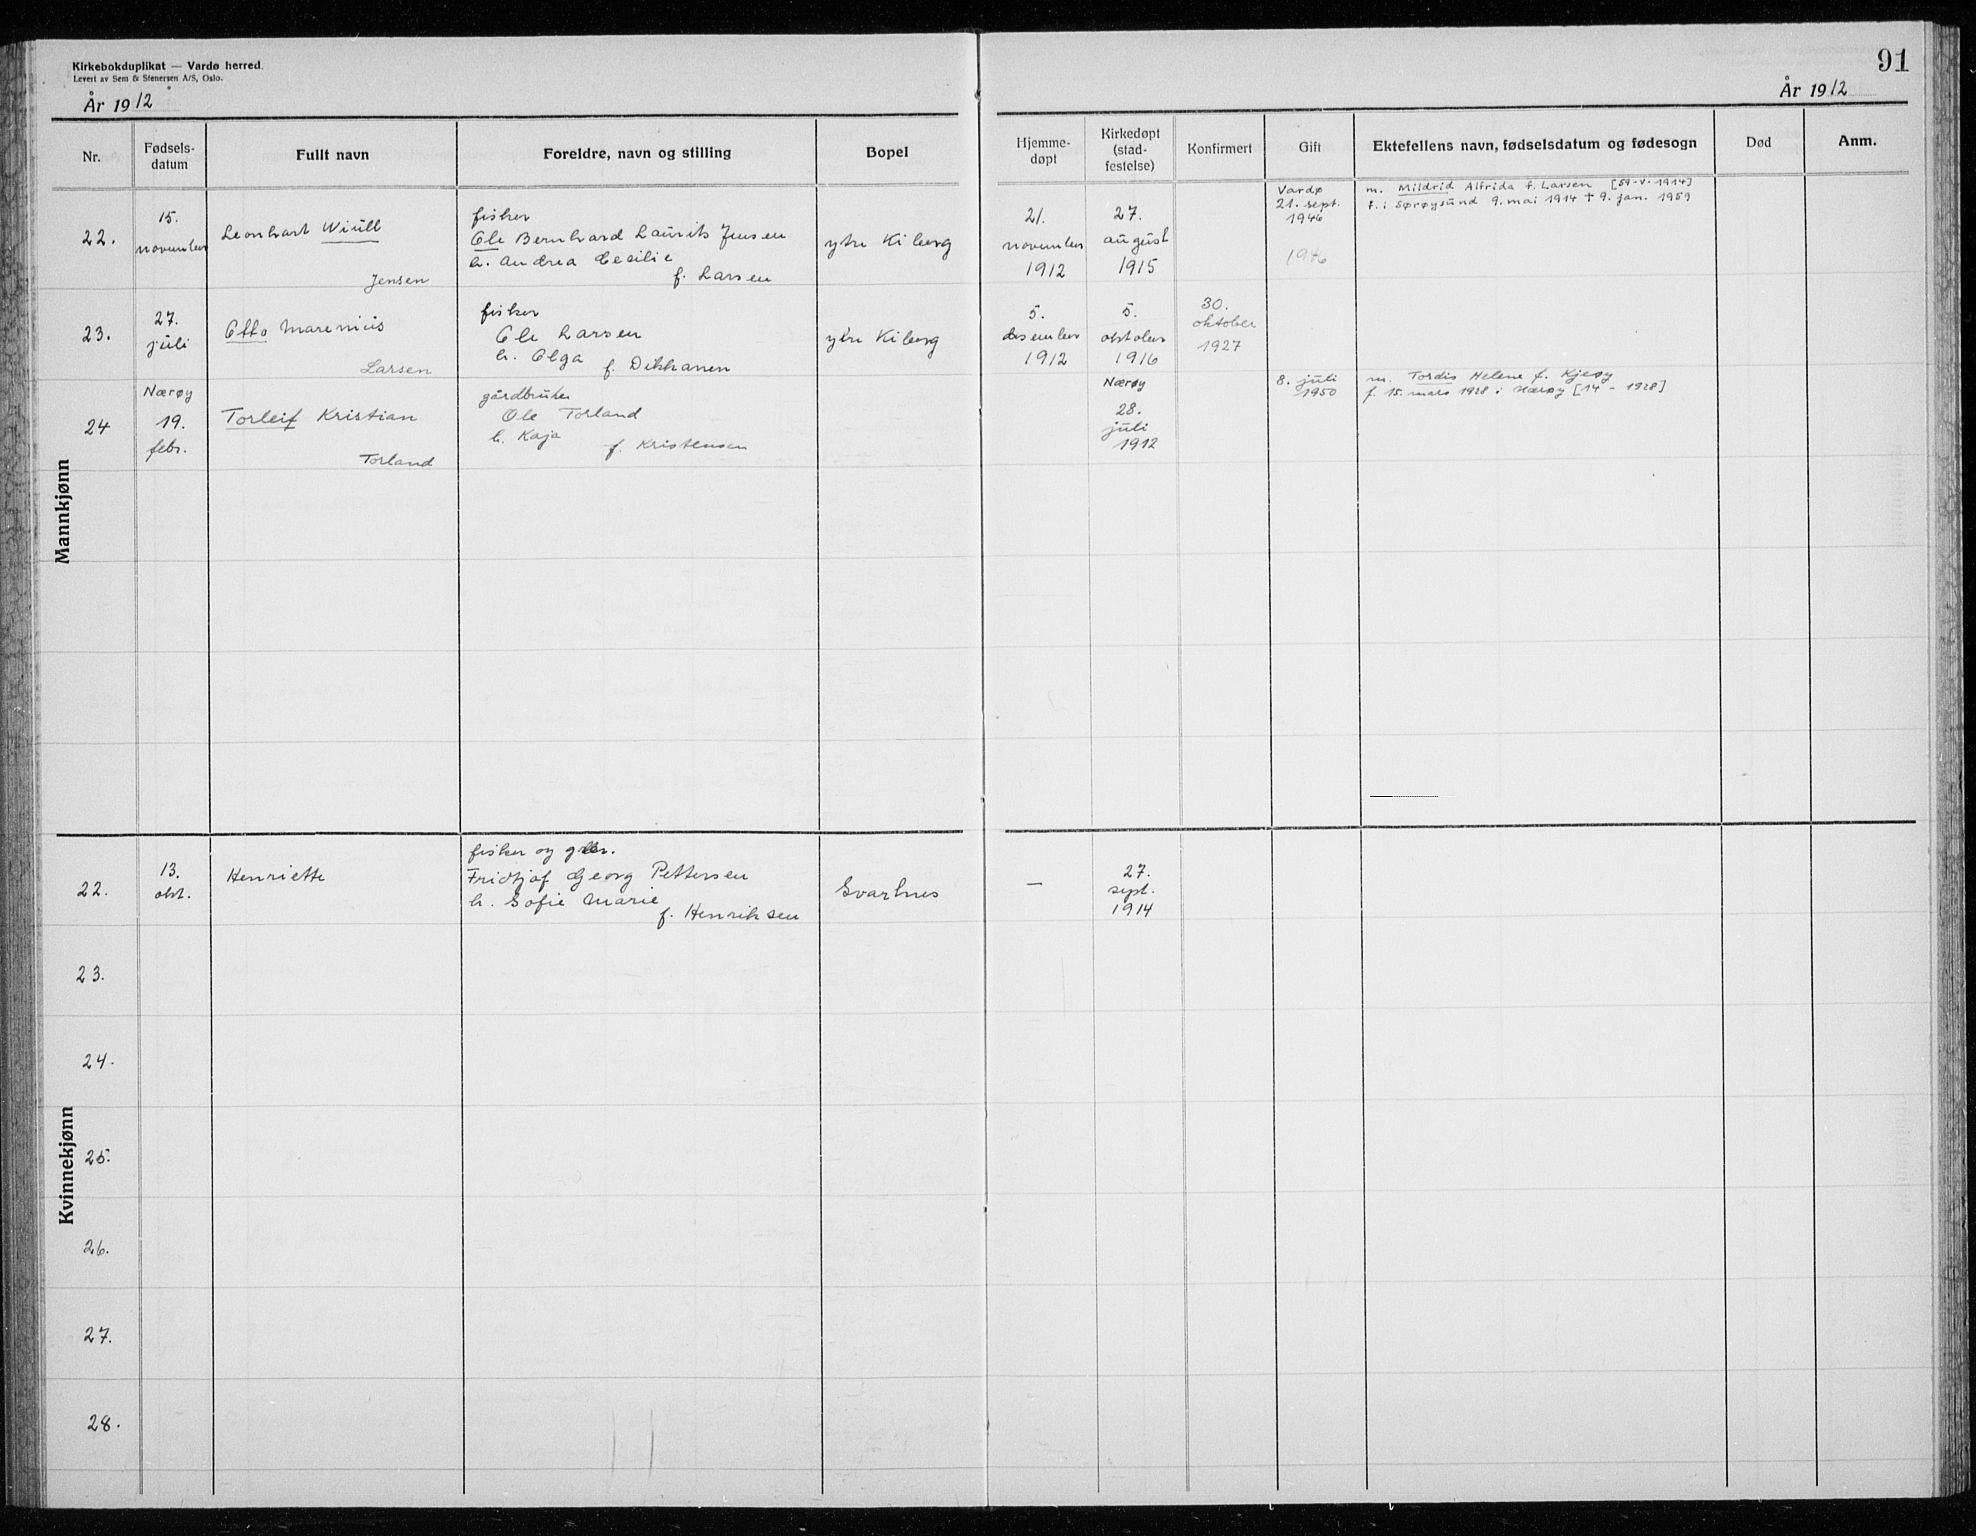 Kirkebokduplikat — Vardø herred.
Levert av Sem & Stenersen A/S, Oslo.
År 1912
91
År 1912
Nr.
Fødsels-
datum
Fullt navn
Foreldre, navn og stilling
Bopel
Hjemme-
døpt
Kirkedøpt
(stad-
festelse)
Konfirmert
Gift
Ektefellens navn, fødselsdatum og fødesogn
Død
Anm.
Mannkjønn
22.
15.
november
Leonhart Wiull
Jensen
fisker
Ole Bernhard Laurits Jensen
h. Andrea Cecilie
f. Larsen
ytre Kiberg
21.
november
1912
27.
august
1915
Vardø
21. sept.
1946
1946
m. Mildrid Alfrida f. Larsen [59-V-1914]
f. i Sørøysund 9. mai 1914 + 9. jan. 1959
23.
27.
juli
Otto Marenius
Larsen
fisker
Ole Larsen
h. Olga
f. Dikkanen
ytre Kiberg
5.
desember
1912
5.
oktober
1916
30.
oktober
1927
24
Nærøy
19.
febr.
Torleif Kristian
Torland
gårdbruker
Ole Torland
h. Kaja
f. Kristensen
Nærøy
28.
juli
1912
8. juli
1950
m. Tordis Helene f. Kjeøy
f. 15. mars 1928 i Nærøy [14 - 1928]
Kvinnekjønn
22.
13.
okt.
Henriette
fisker og gbr.
Fridtjof Georg Pettersen
h. Sofie Marie
f. Henriksen
Svartnes
—
27.
sept.
1914
23.
24.
25.
26.
27.
28.